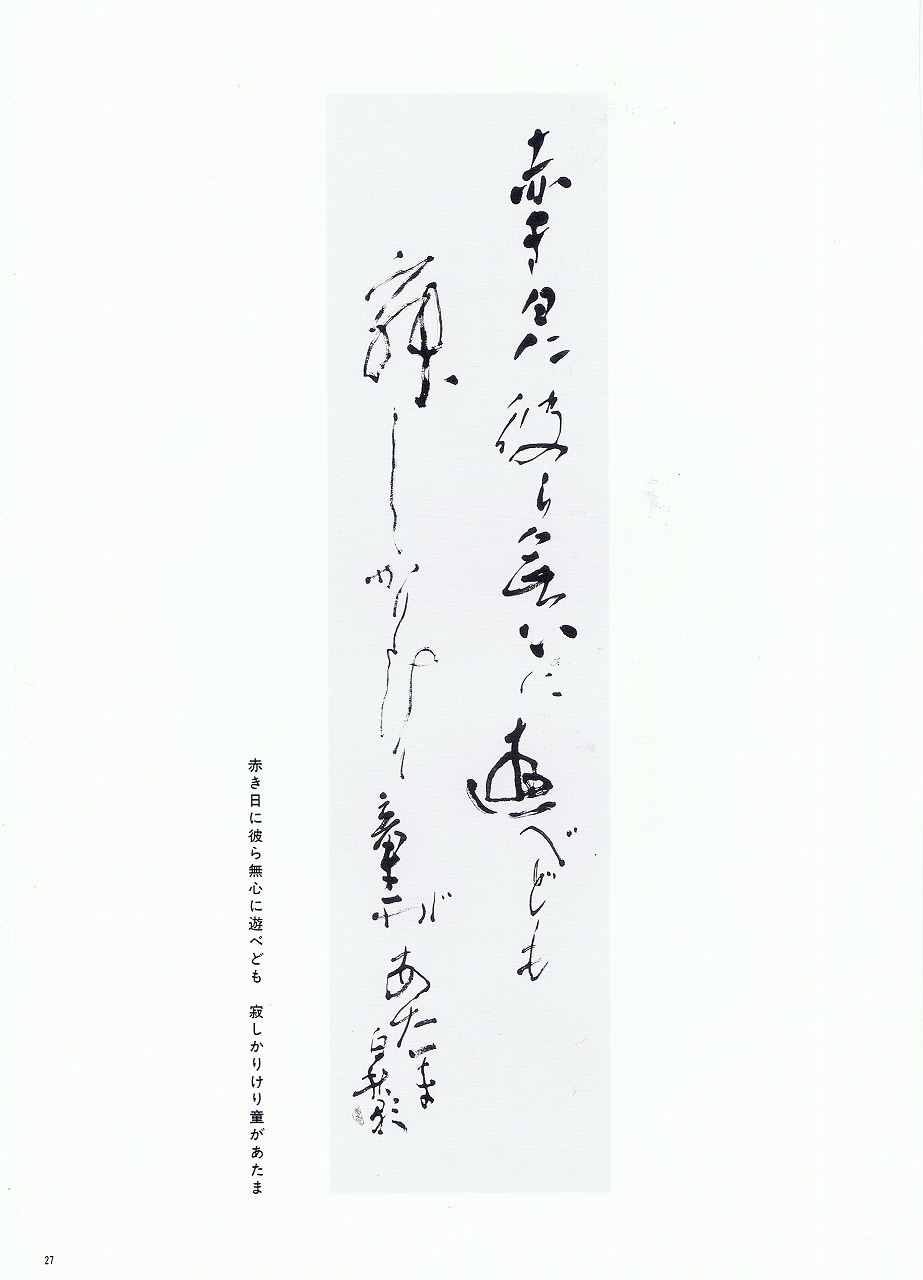 赤き日に彼ら無心に遊べども
寂しかりけり童が
あたま
白秋
赤き日に彼ら無心に遊べども　寂しかりけり童があたま
27